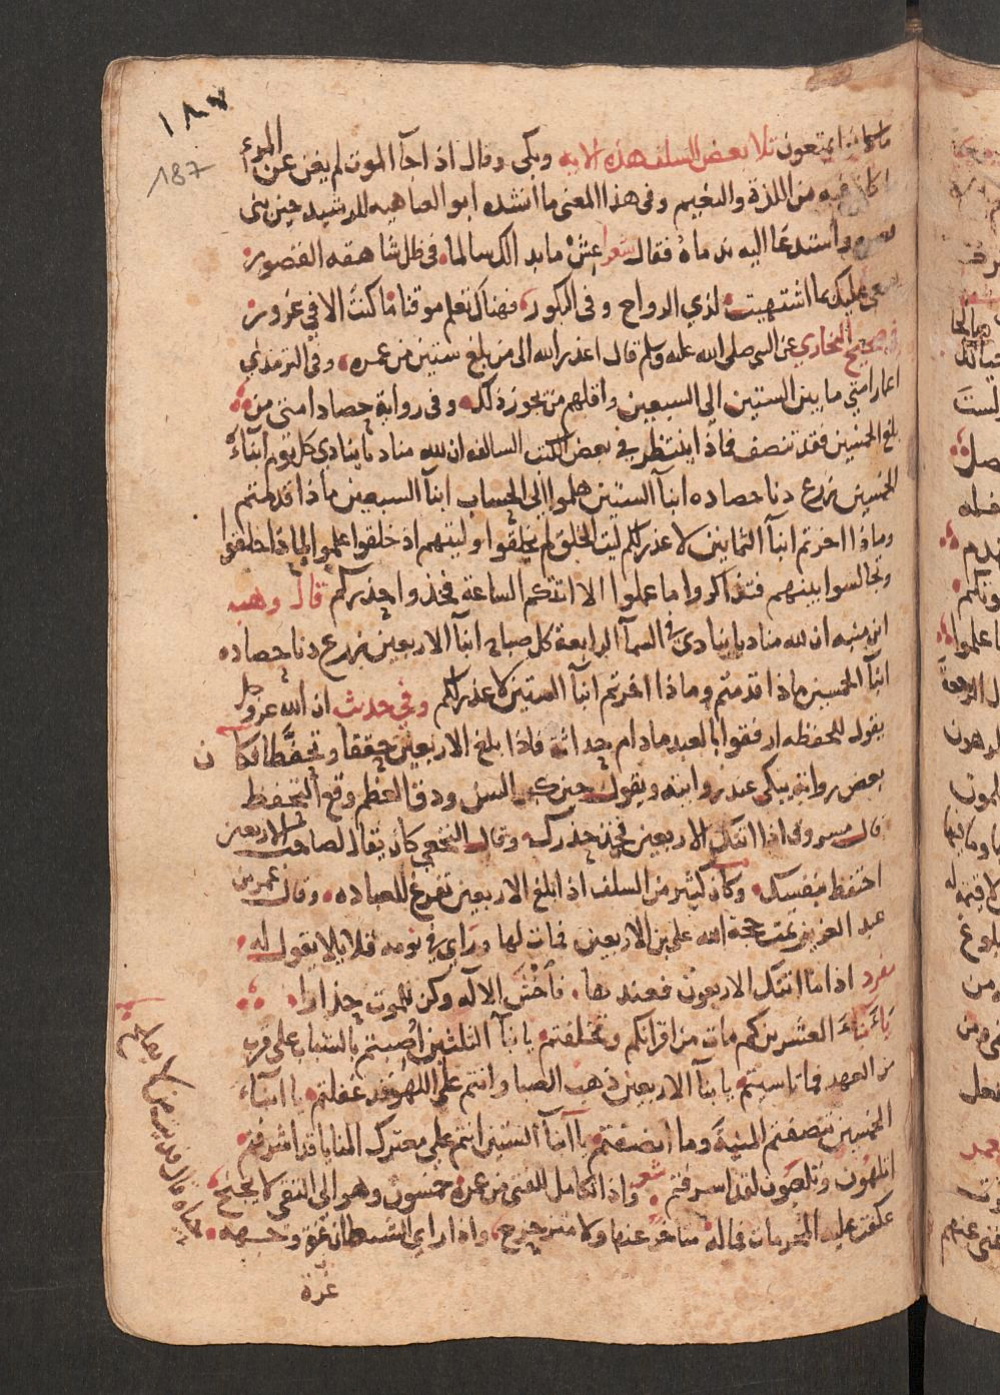 ١٨٧
187
ما كانوا يمتعون تلا بعض السلف هذه الايه وبكى وقال اذا جآ الموت لم يغن عن المرء
ما كان فيه من اللذة والنعيم وفى هذا المعنى ما انشده ابو العتاهيه للرشيد حين بنى
واستدعا اليه ندماه فقال شعرا عش ما بدا لك سالما فى ظل شاهقه القصور
يسعى عليك بما اشتهيت لذي الرواح وفى البكور فهناك تعلم موقنا ما كنت الا في غرور
فى صحيح البخاري عن النبى صلى الله عليه وسلم قال اعذر الله الى من بلغ ستين من عمره وفى الترمذي
اعمار امتي ما بين الستين الى السبعين واقلهم من يجوز ذلك وفى رواية حصاد امتى من
بلغ الخمسين فقد تنصف فماذا ينتظر في بعض الكتب السالفه ان لله مناديا ينادي كل يوم ابناء
الخمسين زرع دنا حصاده ابنآ الستين هلموا الى الحساب ابنآ السبعين ماذا قدمتم
وماذا اخرتم ابنآ الثمانين لا عذر لكم ليت الخلق لم يخلقوا وليتهم اذ خلقوا علموا لماذا خلقوا
وتجالسوا بينهم فتذاكروا ما عملوا الا اتتكم الساعة فخذوا حذركم قال وهب
ابن منبه ان لله مناديا ينادى فى السمآ الرابعة كل صباح ابنآ الاربعين زرع دنا حصاده
ابنآ الخمسين ماذا قدمتم وماذا اخرتم ابنآ الستين لا عذر لكم وفي حديث ان الله عز وجل
يقول للحفظه ارفقوا بالعبد مادام حداثة فاذا بلغ الاربعين حققا وتحفظا فكان
بعض رواته يبكى عند روايته ويقول حين كبر السن ودق العظم وقع التحفظ
قال مسروق اذا اتتك الاربعين فخذ حذرك وقال النخعي كان يقال لصاحب الاربعين
احتفظ بنفسك وكان كثير من السلف اذا بلغ الاربعين تفرغ للعباده وقال عمر بن
عبد العزيز تمت حجة الله على بن الاربعين فمات لها وراي في نومه قايلا يقول له
مفرد اذا ما اتتك الاربعون فعندها فاخش الاله وكن للموت حذارا
يا ابناء العشرين كم مات من اقرانكم وتخلفتم يا ابنآ الثلثين اصبتم بالشباب على قرب
من العهد فما تاسيتم يا ابنآ الاربعين ذهب الصبا وانتم على اللهو قد غفلتم يا ابناء
الخمسين تنصفتم المئية وما انصفتم يا ابنآ الستين انتم على معترك المنايا قد اشرفتم
اتلهون وتلعبون لقد اسرفتم شعر واذا تكامل للفتى من عمره خمسون وهو الى التقى لا يجنح
عكفت عليه المخزيات فما له متاخر عنها ولا متزحزح واذا راي الشيطان غرة وجهه
غرة
حياه قال فديت من لا يفلح